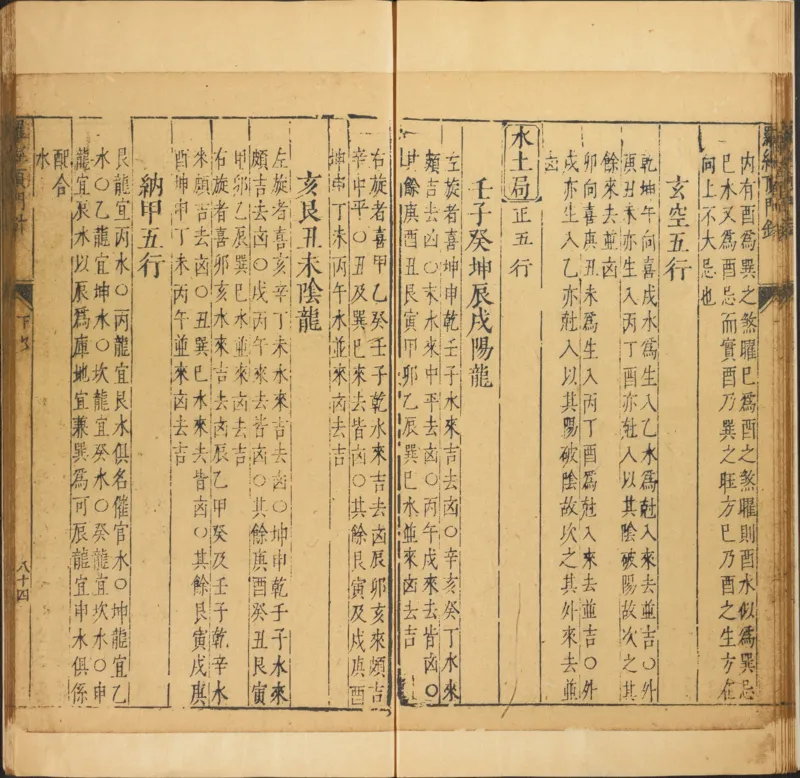 內有酉爲巽之煞曜巳爲酉之煞曜則酉水似爲巽忌
巳水又爲酉忌而實酉乃巽之旺方巳乃酉之生方在
向上不大忌也
玄空五行
乾坤午向喜戌水爲生入乙水爲尅入來去並吉○外
庚丑未亦生入丙丁酉亦尅入以其陰破陽故次之其
餘來去並凶
卯向喜庚丑未爲生入丙丁酉爲尅入來去並吉○外
戌亦生入乙亦尅入以其陽破陰故次之其外來去並
凶
水土局 正五行
壬子癸坤辰戌陽龍
左旋者喜坤申乾壬子水來吉去凶○辛亥癸丁水來
頗吉去凶○未水來中平去凶○丙午戌來去皆凶○
其餘庚酉丑艮寅甲卯乙辰巽巳水並來凶去吉
右旋者喜甲乙癸壬子乾水來吉去凶辰卯亥來頗吉
辛中平○丑及巽巳來去皆凶○其餘艮寅及戌庚酉
坤申丁未丙午水並來凶去吉
亥艮丑未陰龍
左旋者喜亥辛丁未水來吉去凶○坤申乾壬子水來
頗吉去凶○戌丙午來去皆凶○其餘庚酉癸丑艮寅
甲卯乙辰巽巳水並來凶去吉
右旋者喜卯亥水來吉去凶辰乙甲癸及壬子乾辛水
來頗吉去凶○丑巽巳水來去皆凶○其餘艮寅戌庚
酉坤申丁未丙午並來凶去吉
納甲五行
艮龍宜丙水○丙龍宜艮水俱名催官水○坤龍宜乙
水○乙龍宜坤水○坎龍宜癸水○癸龍宜坎水○申
龍宜辰水以辰爲庫地宜兼巽爲可辰龍宜申水俱係
配合
水
八十四